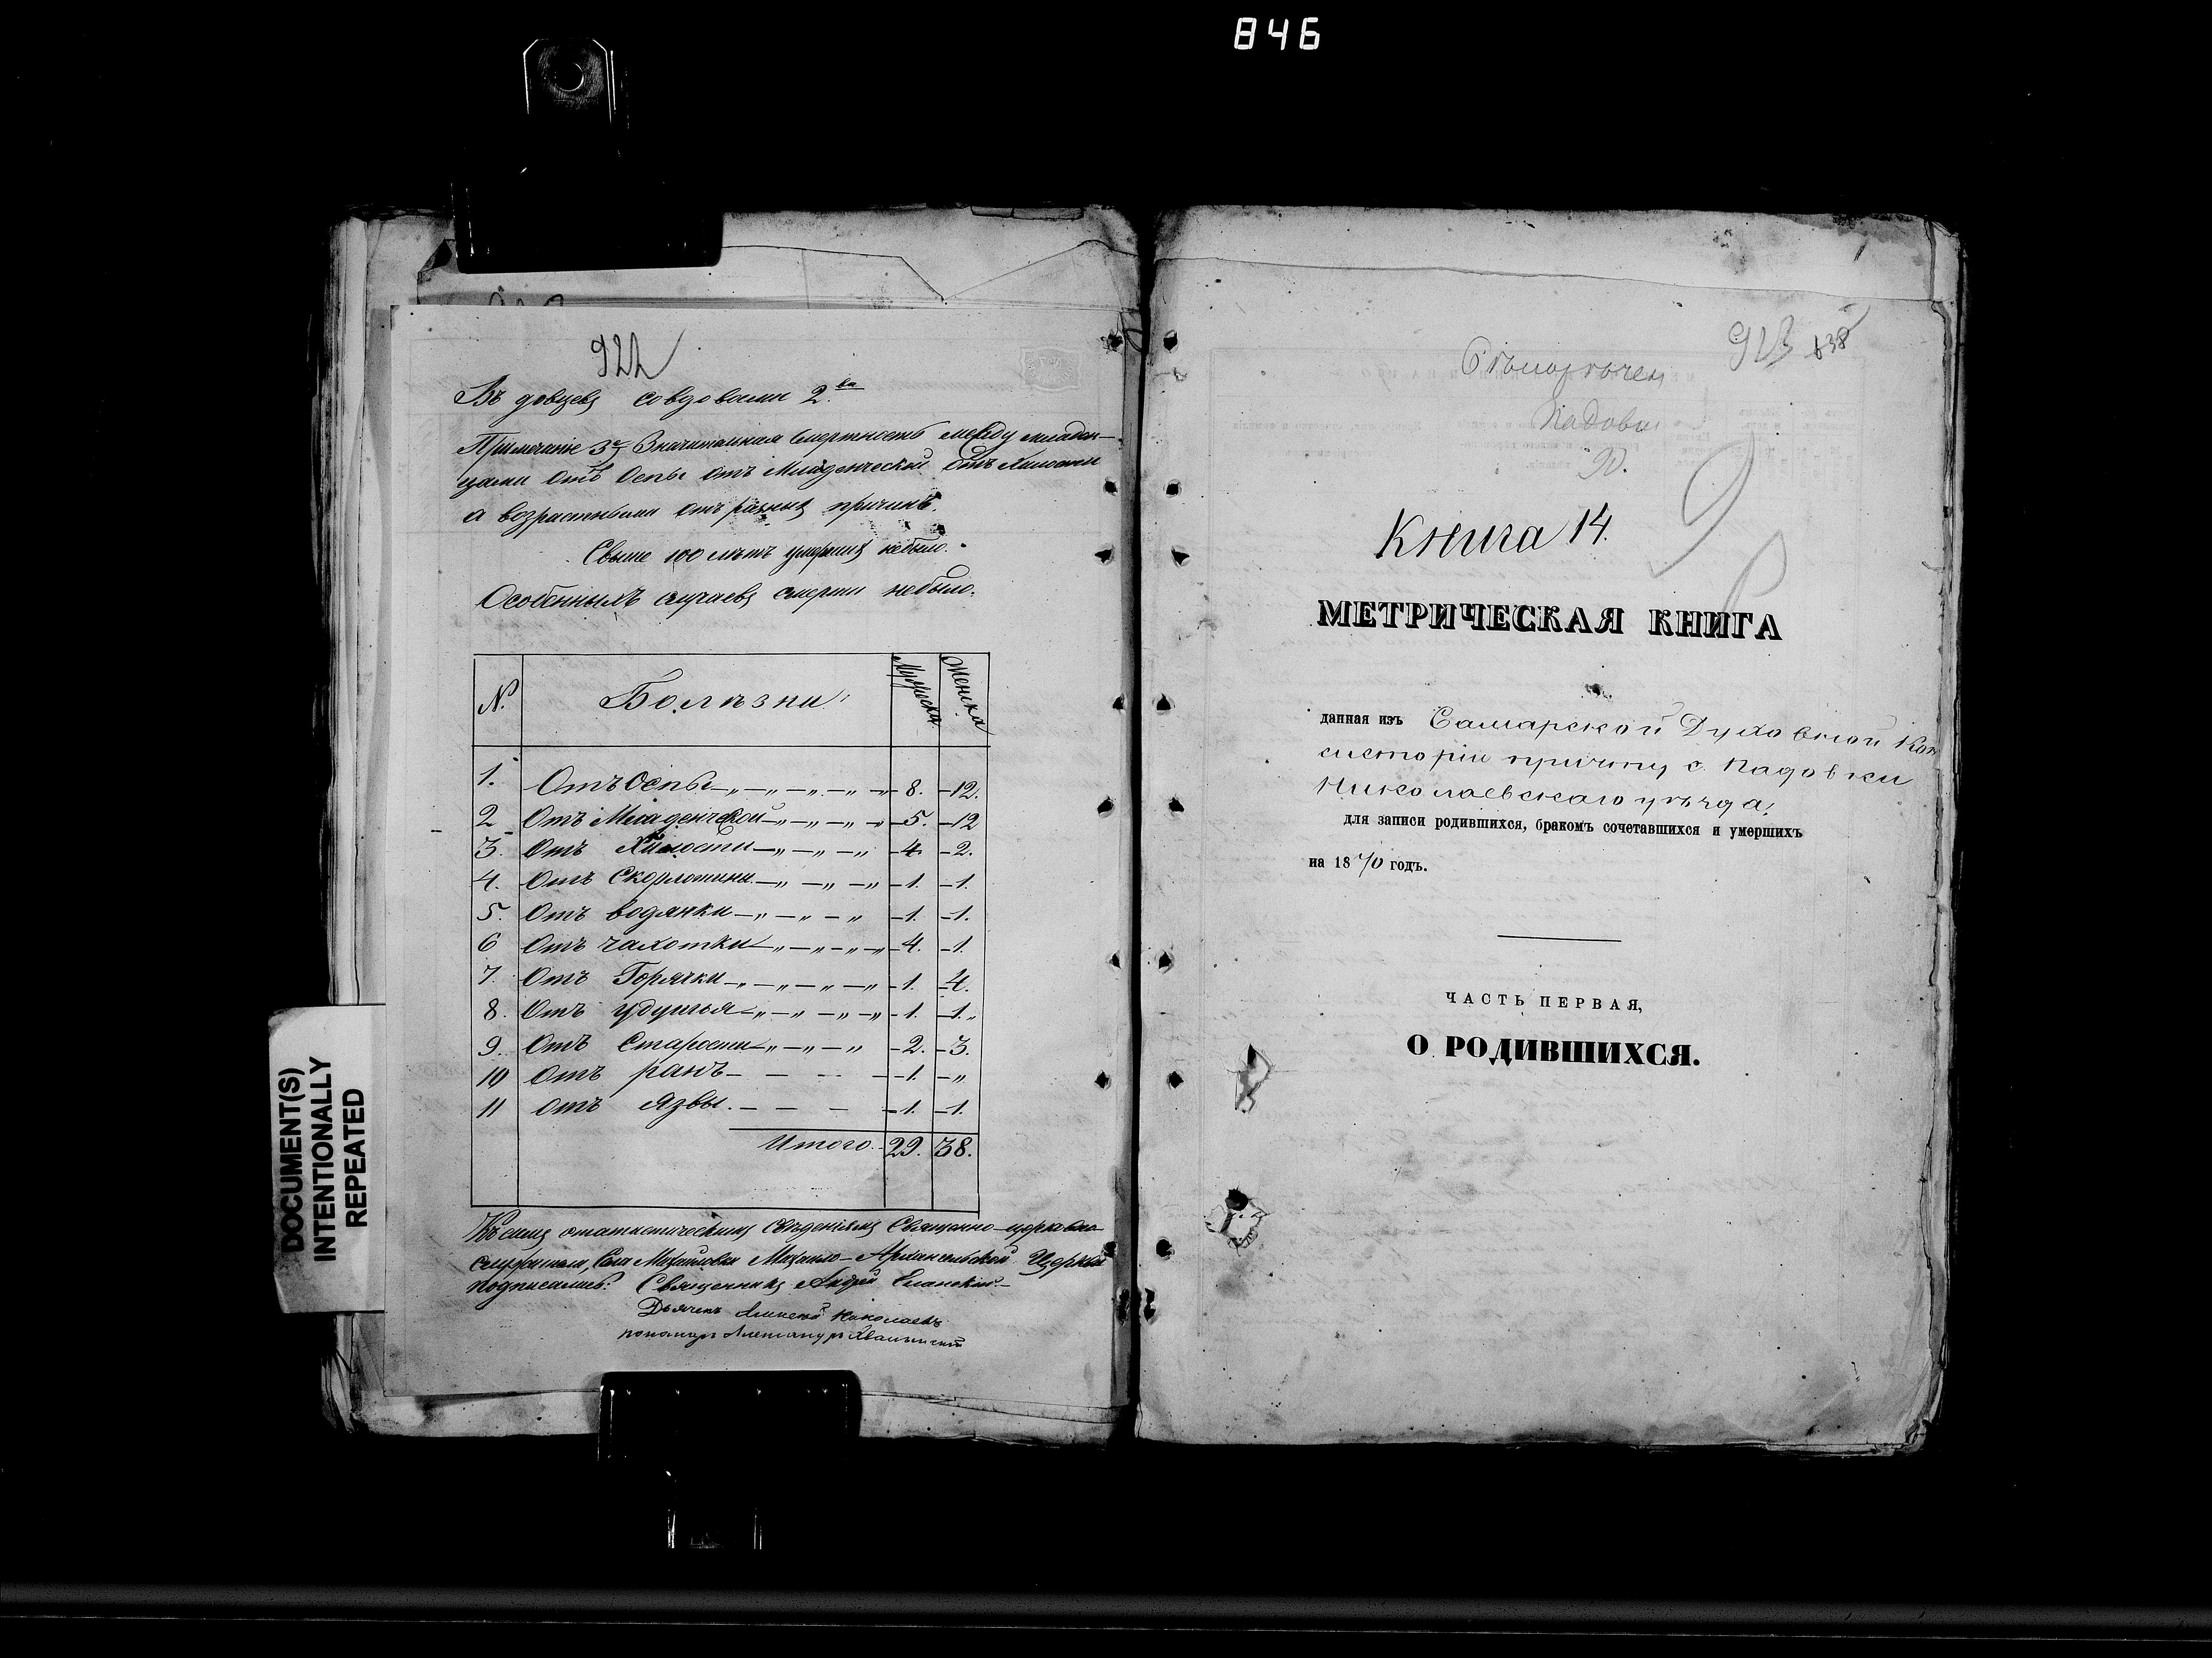 846
922
Въ довцевъ совдовами 2.ва
Примечаніе 3е Значительная смертность между младен-
цами отъ Оспы отъ Младенческой отъ Хилости
а возрастными отъ разныхъ причинъ.
Свыше 100 лѣтъ умершихъ небыло.
Особенныхъ случаевъ смерти небыло.
N. Болѣзни Мужеска Женска
1. Отъ Оспы 8. 12.
2 Отъ Младенческой 5. 12
3. Отъ Хилости 4. 2.
4. Отъ Скорлотины 1. 1.
5. Отъ водянки 1. 1.
6 Отъ чахотки 4. 1.
7. Отъ Горячки 1. 4.
8. Отъ удушья 1. 1.
9. Отъ Старости 2. 3.
10 Отъ ранъ 1. "
11 отъ язвы. 1. 1.
Итого 29. 38.
Къ симъ статистическимъ свѣденіямъ Священно-церковно
служители, Села Михайловки Михаило-Архангельской Церкви
подписались: Священникъ Андрей
Дьячекъ Алексей Николаевъ
пономарь Александръ
DOCUMENT(S)
INTENTIONALLY
REPEATED
923 838
Падовки
90.
Книга 14.
МЕТРИЧЕСКАЯ КНИГА
данная изъ Самарской Духовной Кон
систоріи причту с. Падовки
Николаевскаго уѣзда,
для записи родившихся, бракомъ сочетавшихся и умершихъ
на 1870 годъ.
ЧАСТЬ ПЕРВАЯ,
О РОДИВШИХСЯ.